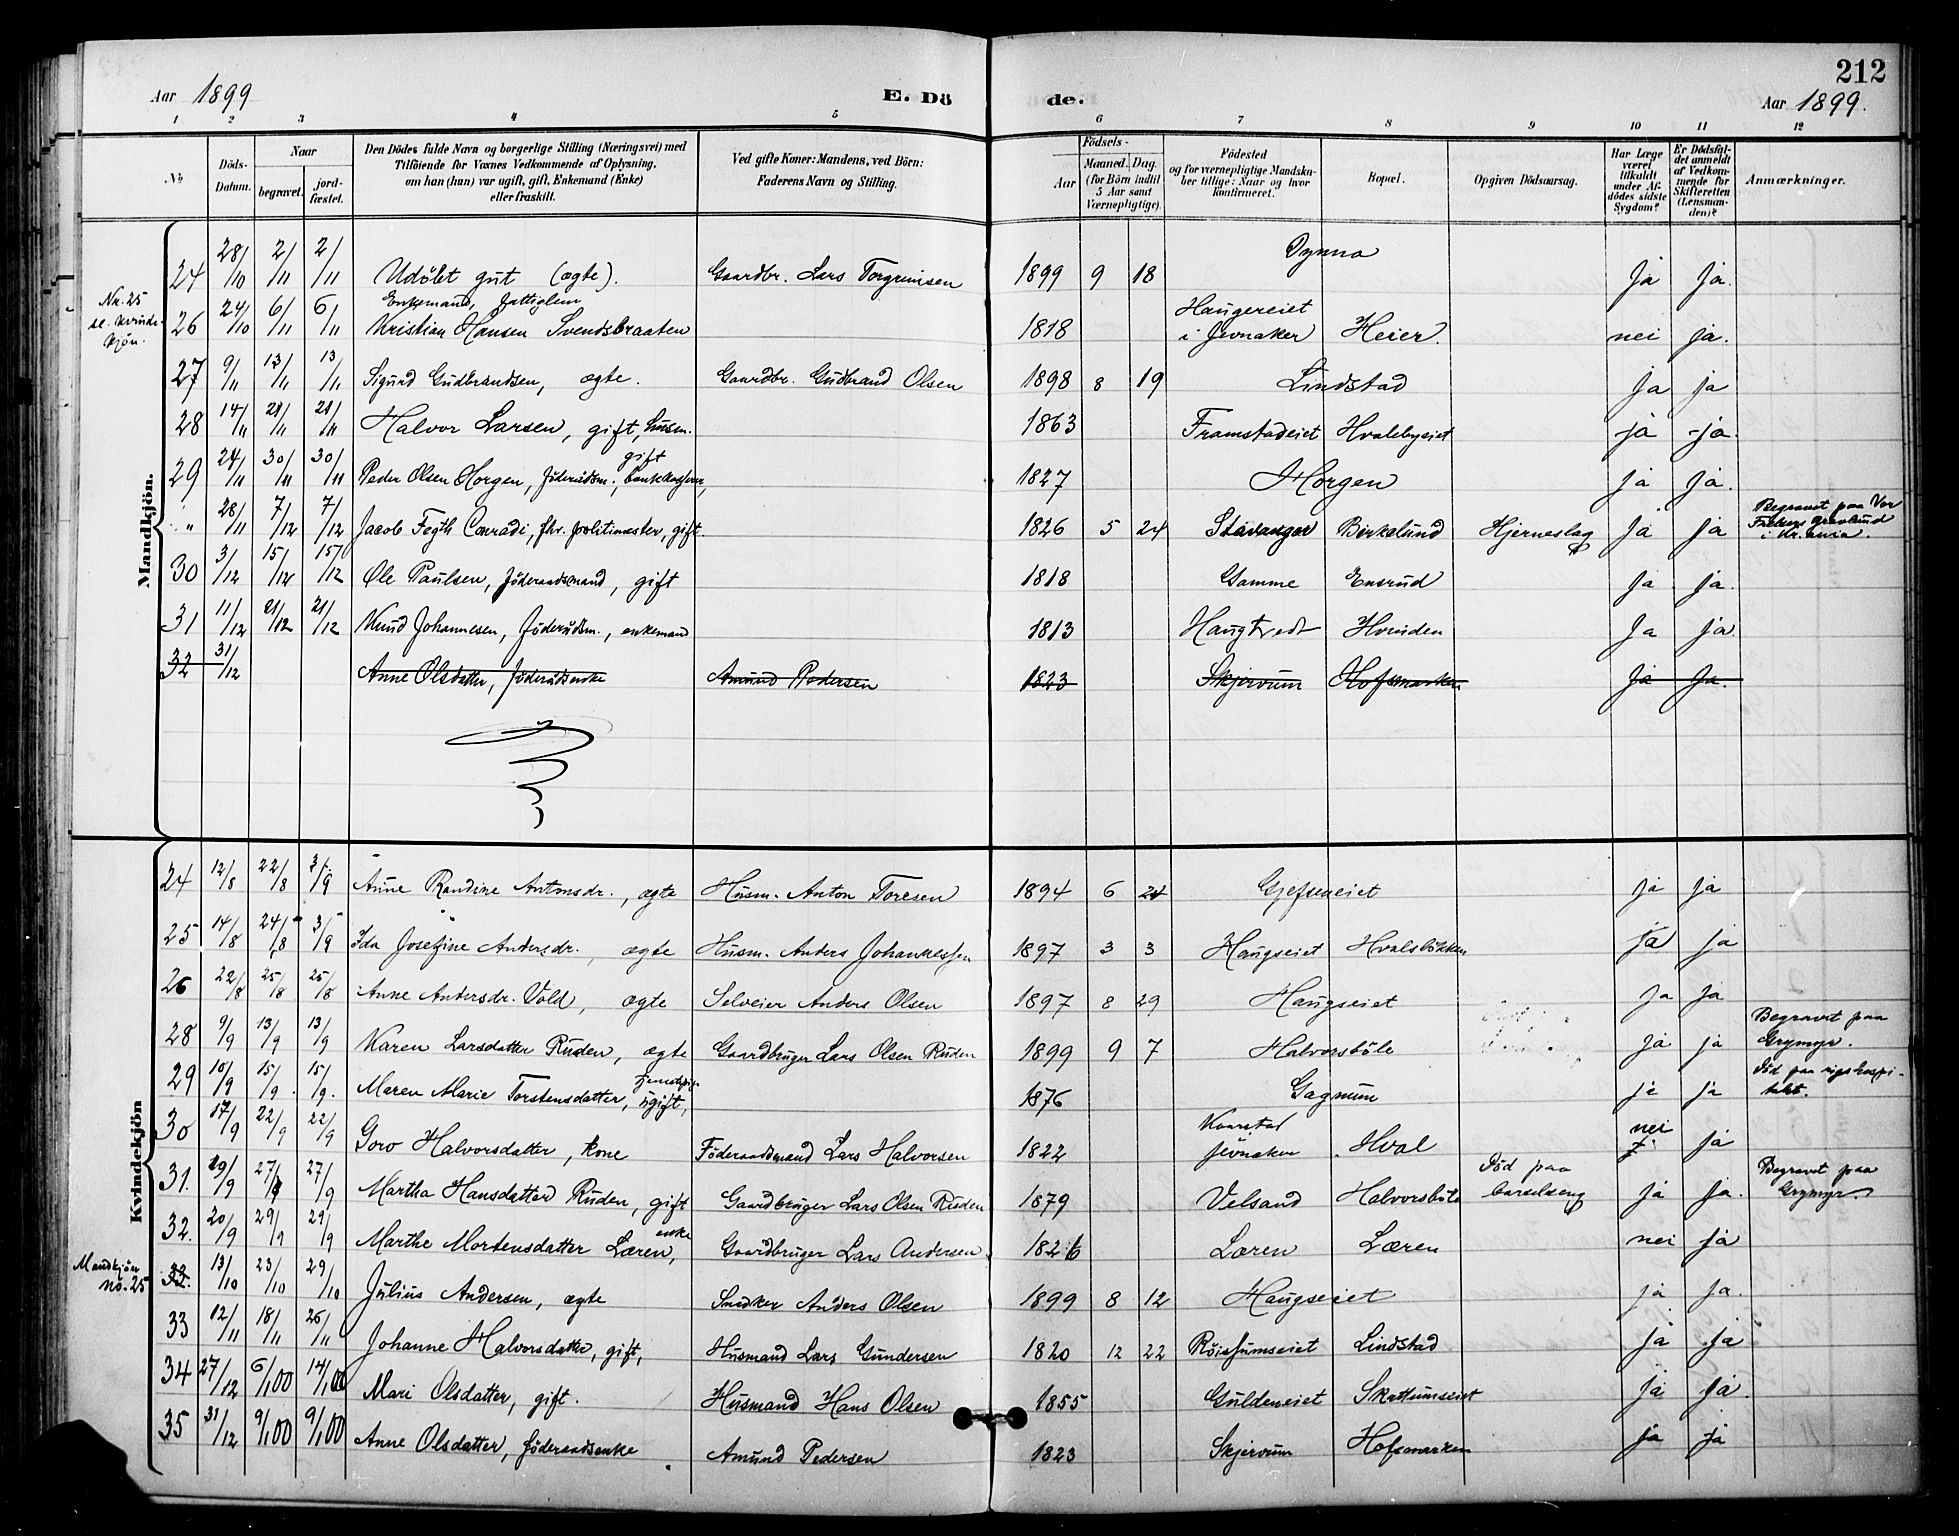 212
Aar 1899 E. Dö de. Aar 1899.
1 2 3 4 5 6 7 8 9 10 11 12
No.
Döds-Datum.
Naar
begravet.
jordfæstet.
Den Dödes fulde Navn og borgerlige Stilling (Næringsvei) med
Tilföiende for Voxnes Vedkommende af Oplysning,
om han (hun) var ugift, gift, Enkemand (Enke)
eller fraskilt.
Ved gifte Koner: Mandens, ved Börn:
Faderens Navn og Stilling.
Födsels-
Aar
Maaned. Dag.
(for Börn indtil
5 Aar samt
Værnepligtige).
Födested
og for værnepligtige Mandska-
ber tillige: Naar og hvor
konfirmeret.
Bopæl.
Opgiven Dödsaarsag.
Har Læge
været
tilkaldt
under Af-
dödes sidste
Sygdom?
Er Dödsfal-
det anmeldt
af Vedkom-
mende for
Skifteretten
(Lensman-
den)?
Anmærkninger.
Mandkjön.
24 28/10 2/11 2/11 Udöbt gut (ægte). Gaardbr. Lars Torgrimsen 1899 9 18 Dynna Ja Ja.
Nr. 25
se kvinde-
kjön.
Enkemand, fattiglem
26 24/10 6/11 6/11 Kristian Hansen Svendsbraaten 1818 Haugereiet
i Jevnaker Heier. nei ja.
27 9/11 13/11 13/11 Sigurd Gudbrandsen, ægte. Gaardbr. Gudbrand Olsen 1898 8 19 Lindstad Ja ja
28 14/11 21/11 21/11 Halvor Larsen, gift, husm. 1863 Framstadeiet Hvalebyeiet ja ja.
gift
29 24/11 30/11 30/11 Peder Olsen Horgen, föderaadsm., bankkasserer, 1827 Horgen ja ja.
" 28/11 7/12 7/12 Jacob Fegth Conradi, fhv. politimester, gift. 1826 5 24 Stavanger Birkelund Hjerneslag Ja ja Begravet paa Vor
Frelsers Gravlund
i Kr.ania.
30 3/12 15/12 15/12 Ole Paulsen, föderaadsmand, gift 1818 Gamme Ensrud ja ja.
31 11/12 21/12 21/12 Knud Johannesen, föderaadsm., enkemand 1813 Haugtvedt Hvinden Ja ja.
32 31/12 Anne Olsdatter, föderaadsenke Amund Pedersen 1823 Skjervum Hofsmarken ja Ja.
Kvindekjön
24 12/8 22/8 3/9 Anne Randine Antonsdr., ægte Husm. Anton Toresen 1894 6 24 Gjefseneiet ja ja
25 14/8 24/8 3/9 Ida Josefine Andersdr., ægte Husm. Anders Johannessen 1897 3 3 Haugseiet Hvalsbökken ja ja
26 22/8 25/8 25/8 Anne Andersdr. Vold, ægte Selveier Anders Olsen 1897 8 29 Haugseiet ja ja
28 9/9 13/9 13/9 Karen Larsdatter Ruden, ægte Gaardbruger Lars Olsen Ruden 1899 9 7 Halvorsböle ja ja Begravet paa
Grymyr.
29 10/9 15/9. 15/9. Maren Marie Torstensdatter, ugift, 1876 Gagnum ja ja Död paa rigshospi-
talet.
30 17/9 22/9 22/9 Goro Halvorsdatter, kone Föderaadmand Lars Halvorsen 1822 Kvarstad
Jevnaker Hval nei ja
31. 19/9 27/9 27/9 Martha Hansdatter Ruden, gift Gaardbruger Lars Olsen Ruden 1879 Velsand Halvorsböle Död paa
barselseng ja ja. Begravet paa
Grymyr.
enke
32. 20/9 29/9 29/9 Marthe Mortensdatter Læren, Gaardbruger Lars Andersen 1826 Læren Læren nei ja
Mandkjön
no. 25
33. 13/10 23/10 29/10 Julius Andersen, ægte Snedker Anders Olsen 1899 8 12 Haugseiet ja ja.
33 12/11 18/11 26/11 Johanne Halvorsdatter, gift, Husmand Lars Gundersen 1820 12 22 Röissumseiet Lindstad ja ja
34 27/12 6/1 00 14/1 00 Mari Olsdatter, gift. Husmand Hans Olsen 1855 Guldeneiet Skattumseiet ja ja.
35 31/12 9/1 00 9/1 00 Anne Olsdatter, föderaadsenke Amund Pedersen 1823 Skjervum Hofsmarken ja ja